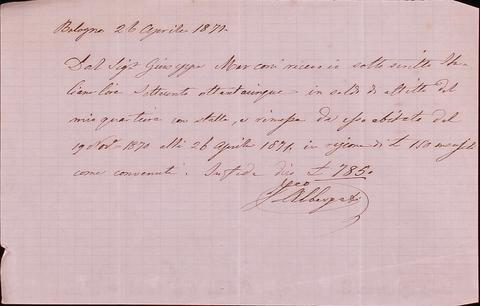 Bologna 26 Aprile 1871.
Dal Sig.r Giuseppe Marconi ricevo io sotto scritto Ita=
liane Lire Settecento ottantacinque in saldo di affitto del
mio quartiere con stalla, e rimessa da esso abitato dal
19 Nov.e 1870 alli 26 Aprile 1871, in ragione di £ 150 mensili
come convenuti. In fede dico £ 785.
Albergati